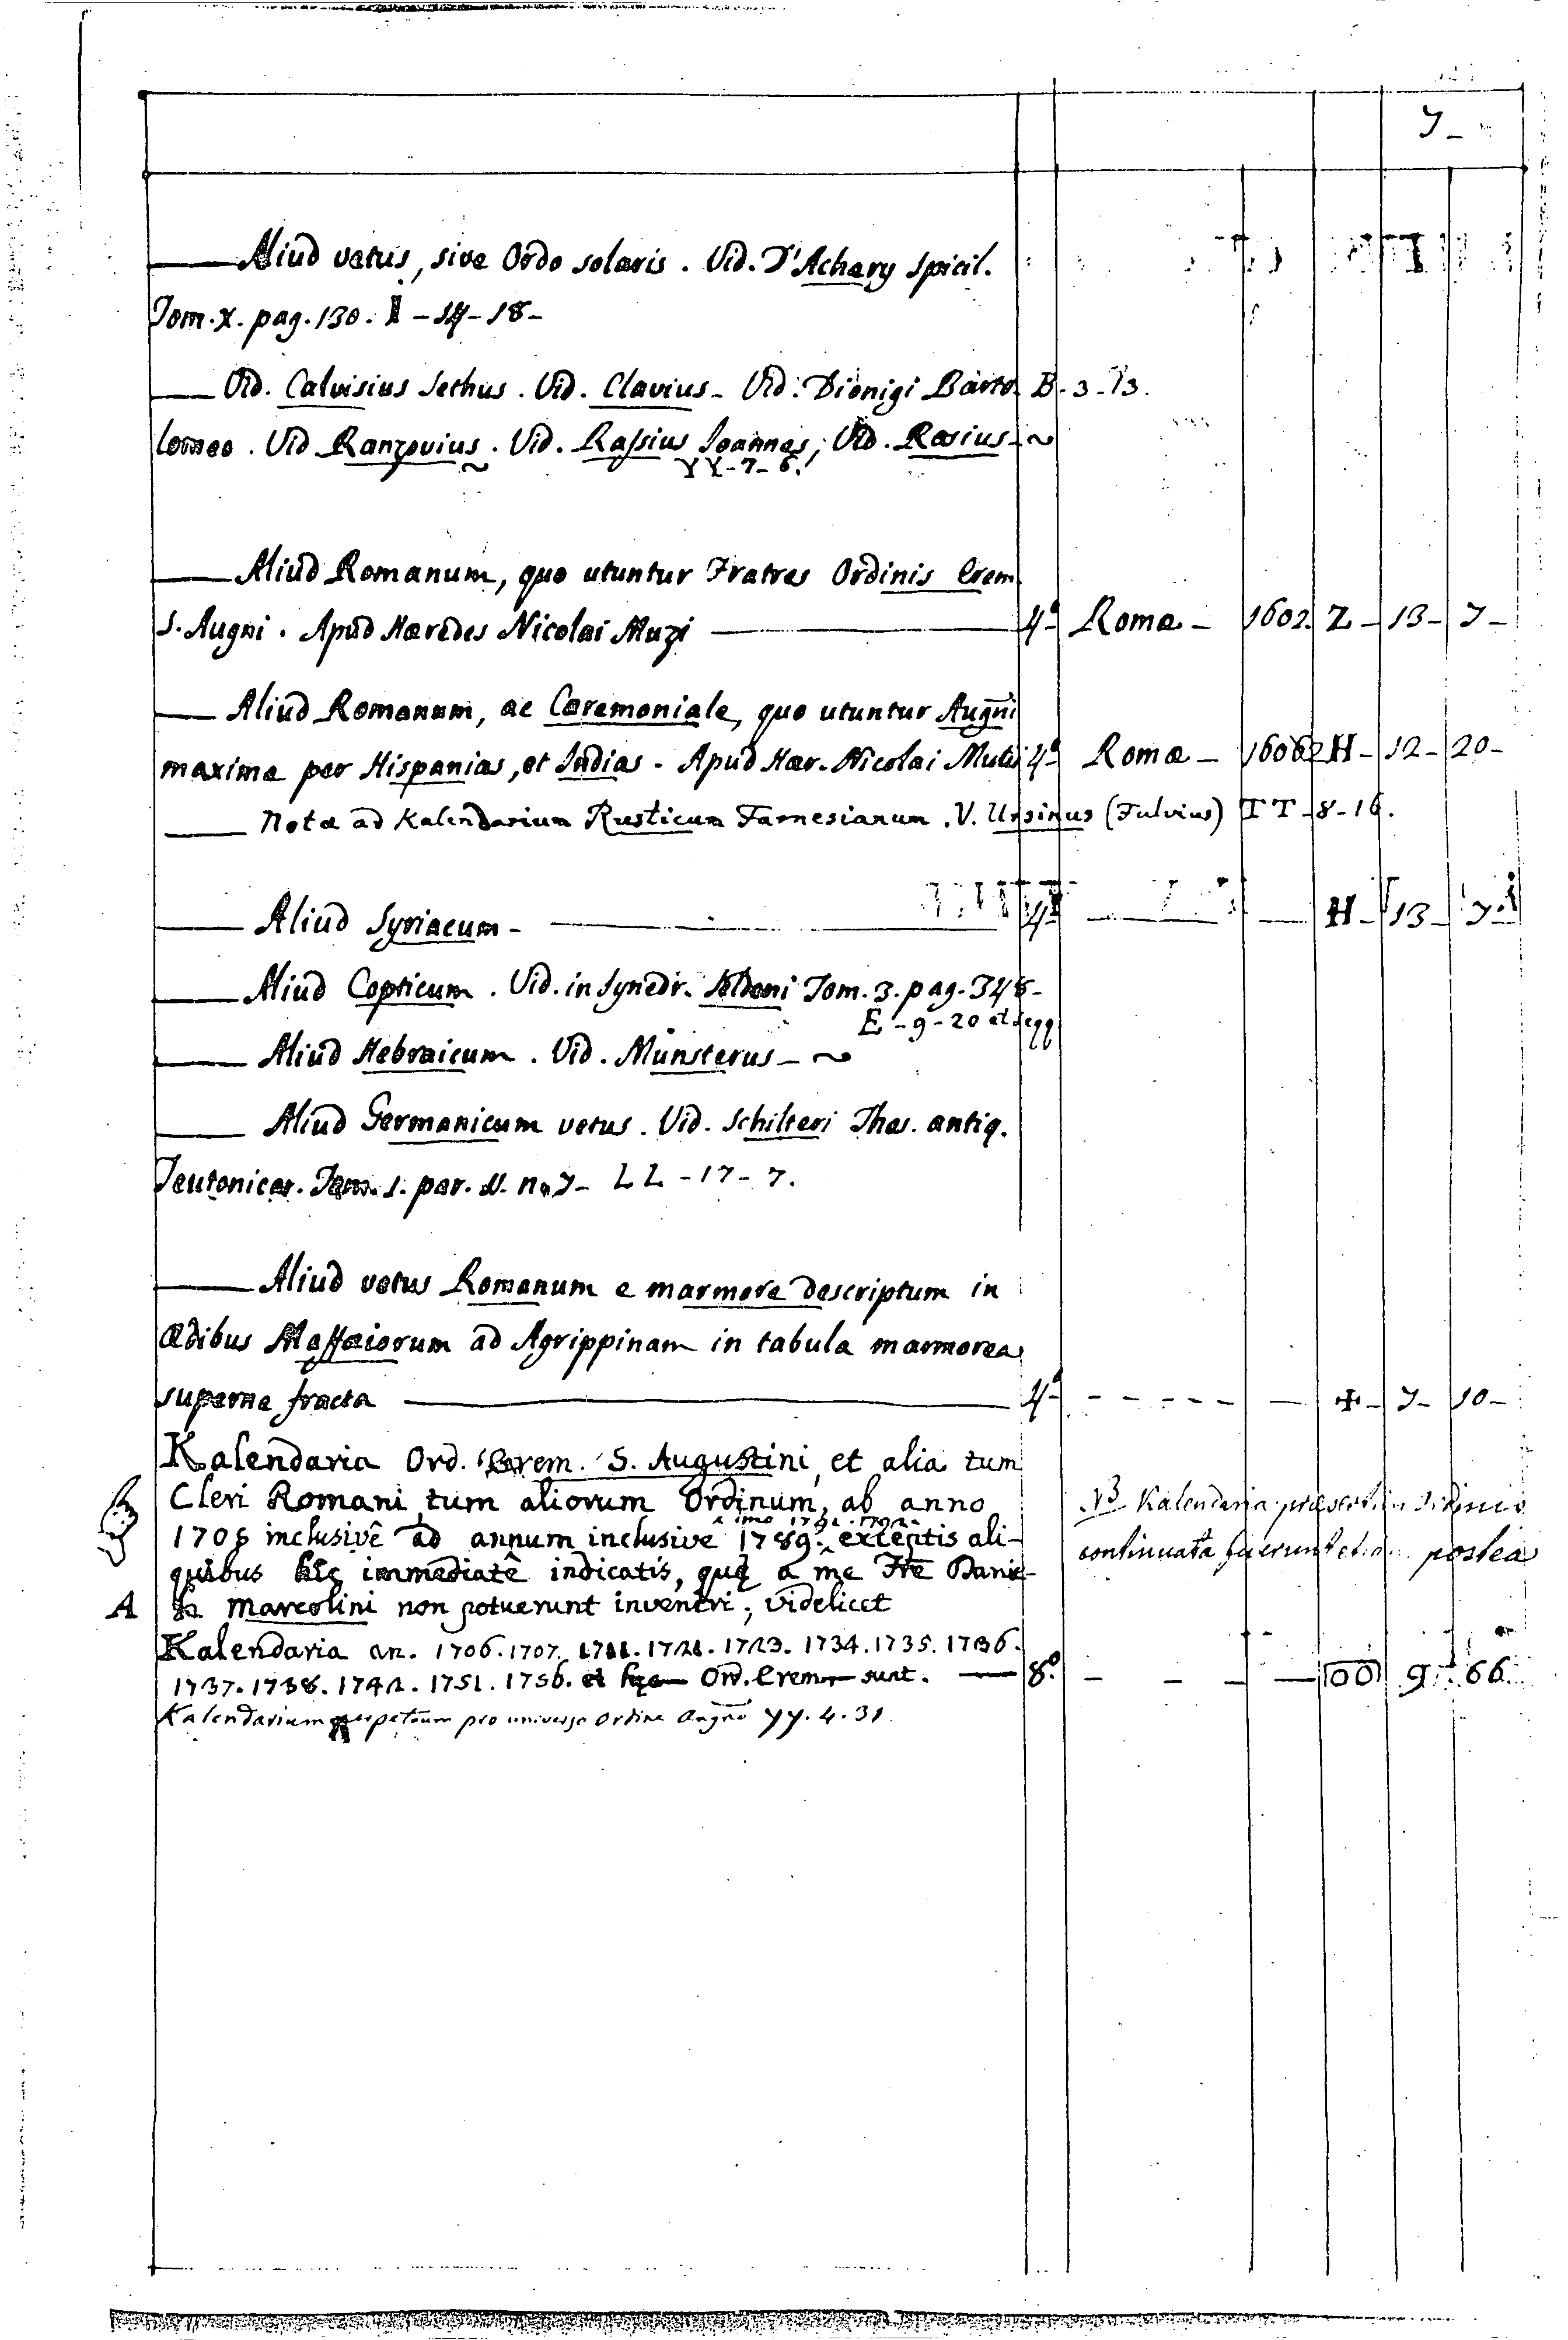 7-
—— Aliud vetus, sive Ordo solaris. Vid. D'Achery Spicil.
Tom. X. pag. 130. I - 14 - 18 -
—— Vid. Calvisius Sethus. Vid. Clavius - Vid. Dionigi Barto- B - 3 - 13.
lomeo. Vid Ranzovius. Vid. Rassius Joannes, Vid. Rosius - ~
YY - 7 - 6.
—— Aliud Romanum, quo utuntur Fratres Ordinis Erem
S. Augni. Apud Hæredes Nicolai Muzi —— 4º Romæ - 1602. Z - 13 - 7 -
—— Aliud Romanum, ac Cæremoniale, quo utuntur Augni
maxime per Hispanias, et Indias - Apud Hær. Nicolai Mutii 4º Romæ - 1606 H - 12 - 20 -
—— Notæ ad Kalendarium Rusticum Farnesianum. V. Ursinus (Fulvius) TT - 8 - 16.
—— Aliud Syriacum - —— 4º —— — H - 13 - 7.
—— Aliud Copticum. Vid. in Synedr. Seldeni Tom. 3. pag. 348 -
E - 9 - 20 et seqq
—— Aliud Hebraicum. Vid. Munsterus - ~
—— Aliud Germanicum vetus. Vid. Schilteri Thes. antiq.
Teutonicar. Tom. 1. par. n. 7 - LL - 17 - 7.
—— Aliud vetus Romanum e marmore descriptum in
ædibus Maffæiorum ad Agrippinam in tabula marmorea
superne fracta —— 4º - - - - - — ✠ - 7 - 10 -
Kalendaria Ord. Erem. S. Augustini, et alia tum
Cleri Romani tum aliorum Ordinum, ab anno NB Kalendaria
1705 inclusivê ad annum inclusive 1789. exceptis ali- continuata fuerunt postea
quibus hîc immediatê indicatis, quę a me Fre Danie-
A Marcolini non potuerunt inveniri; videlicet
Kalendaria an. 1706. 1707. 1723. 1734. 1735. 1736.
1737. 1738. 1742. 1751. 1756. Ord. Erem sunt. —— 8º. - - - — 00 9 - 66.
Kalendarium perpetuum pro universo Ordine Augno YY. 4. 31.